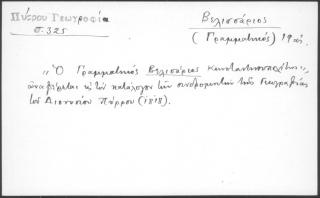 Πύρρου Γεωγραφία
σ. 325
Βελισσάριος
(Γραμματικός) 19 αἰ.
„Ὁ Γραμματικὸς Βελισάριος Κωνσταντινουπολίτης"
ἀναφέρεται εἰς τὸν κατάλογον τῶν συνδρομητῶν τῆς Γεωγραφίας
τοῦ Διονυσίου Πύρρου (1818).